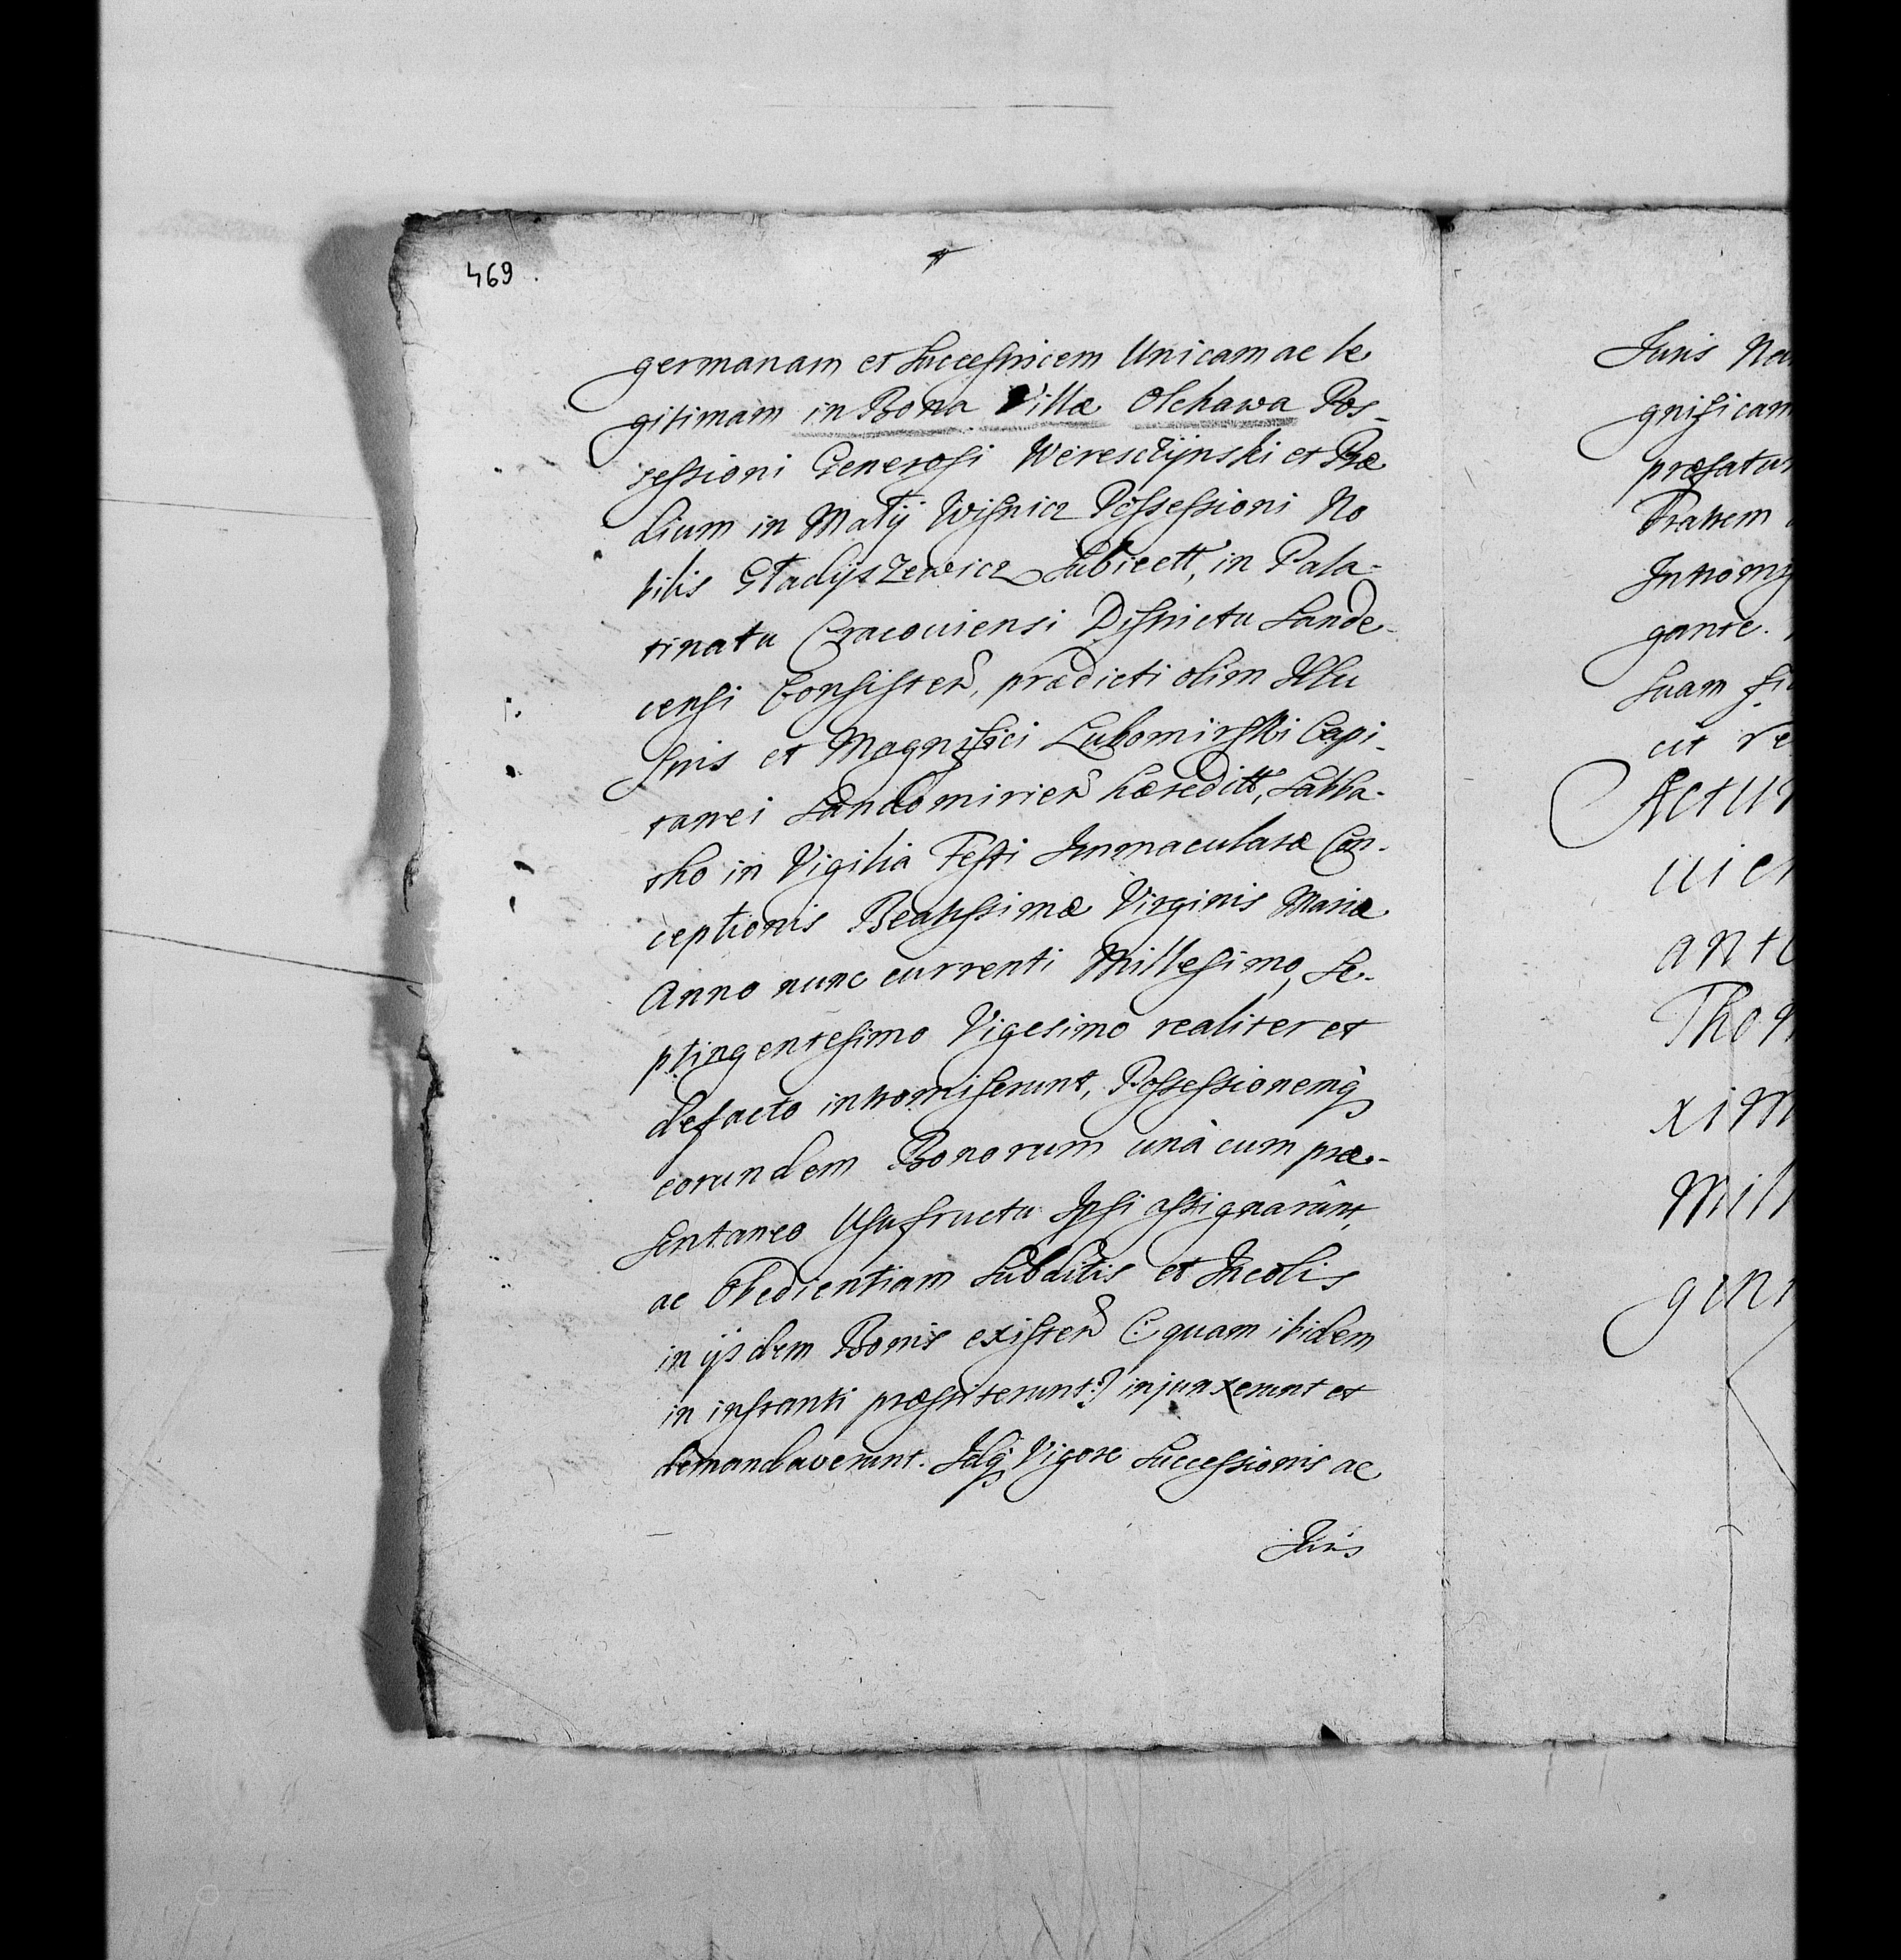 469.
germanam et Successricem Unicam ac le
gitimam in Bona Villæ Olchawa Pos-
sessioni Generosi Werescżÿnski et Præ
dium in Małÿ Wisnicz Possessioni No
bilis Gładÿszewicz Subiectt, in Pala-
tinatu Cracouiensi Districtu Sande-
censi Consisteñ, prædicti olim Illu
stris et Magnifici Lubomirski Capi-
tanei Sandomirieñ hæreditt, Sabba-
tho in Vigilia Festi Immaculatæ Con-
ceptionis Beatissimæ Virginis Mariæ
Anno nunc currenti Millesimo, Se-
ptingentesimo Vigesimo realiter et
defacto intromiserunt, Possessionemq
eorundem Bonorum unà cum præ-
sentaneo Usufructu Ipsi assignarûnt,
ac Obedientiam Subditis et Incolis
in ijsdem Bonis existeñ (: quam ibidem
in instanti præstiterunt :) injunxerunt et
demandaverunt. Idq Vigore Successionis ac
Juris
Juris Na
gnificam
præfatu
Fratrem
Intromi
gante.
Suam
ut re
Actu
uien
ante
Tho
xim
Mill
gen